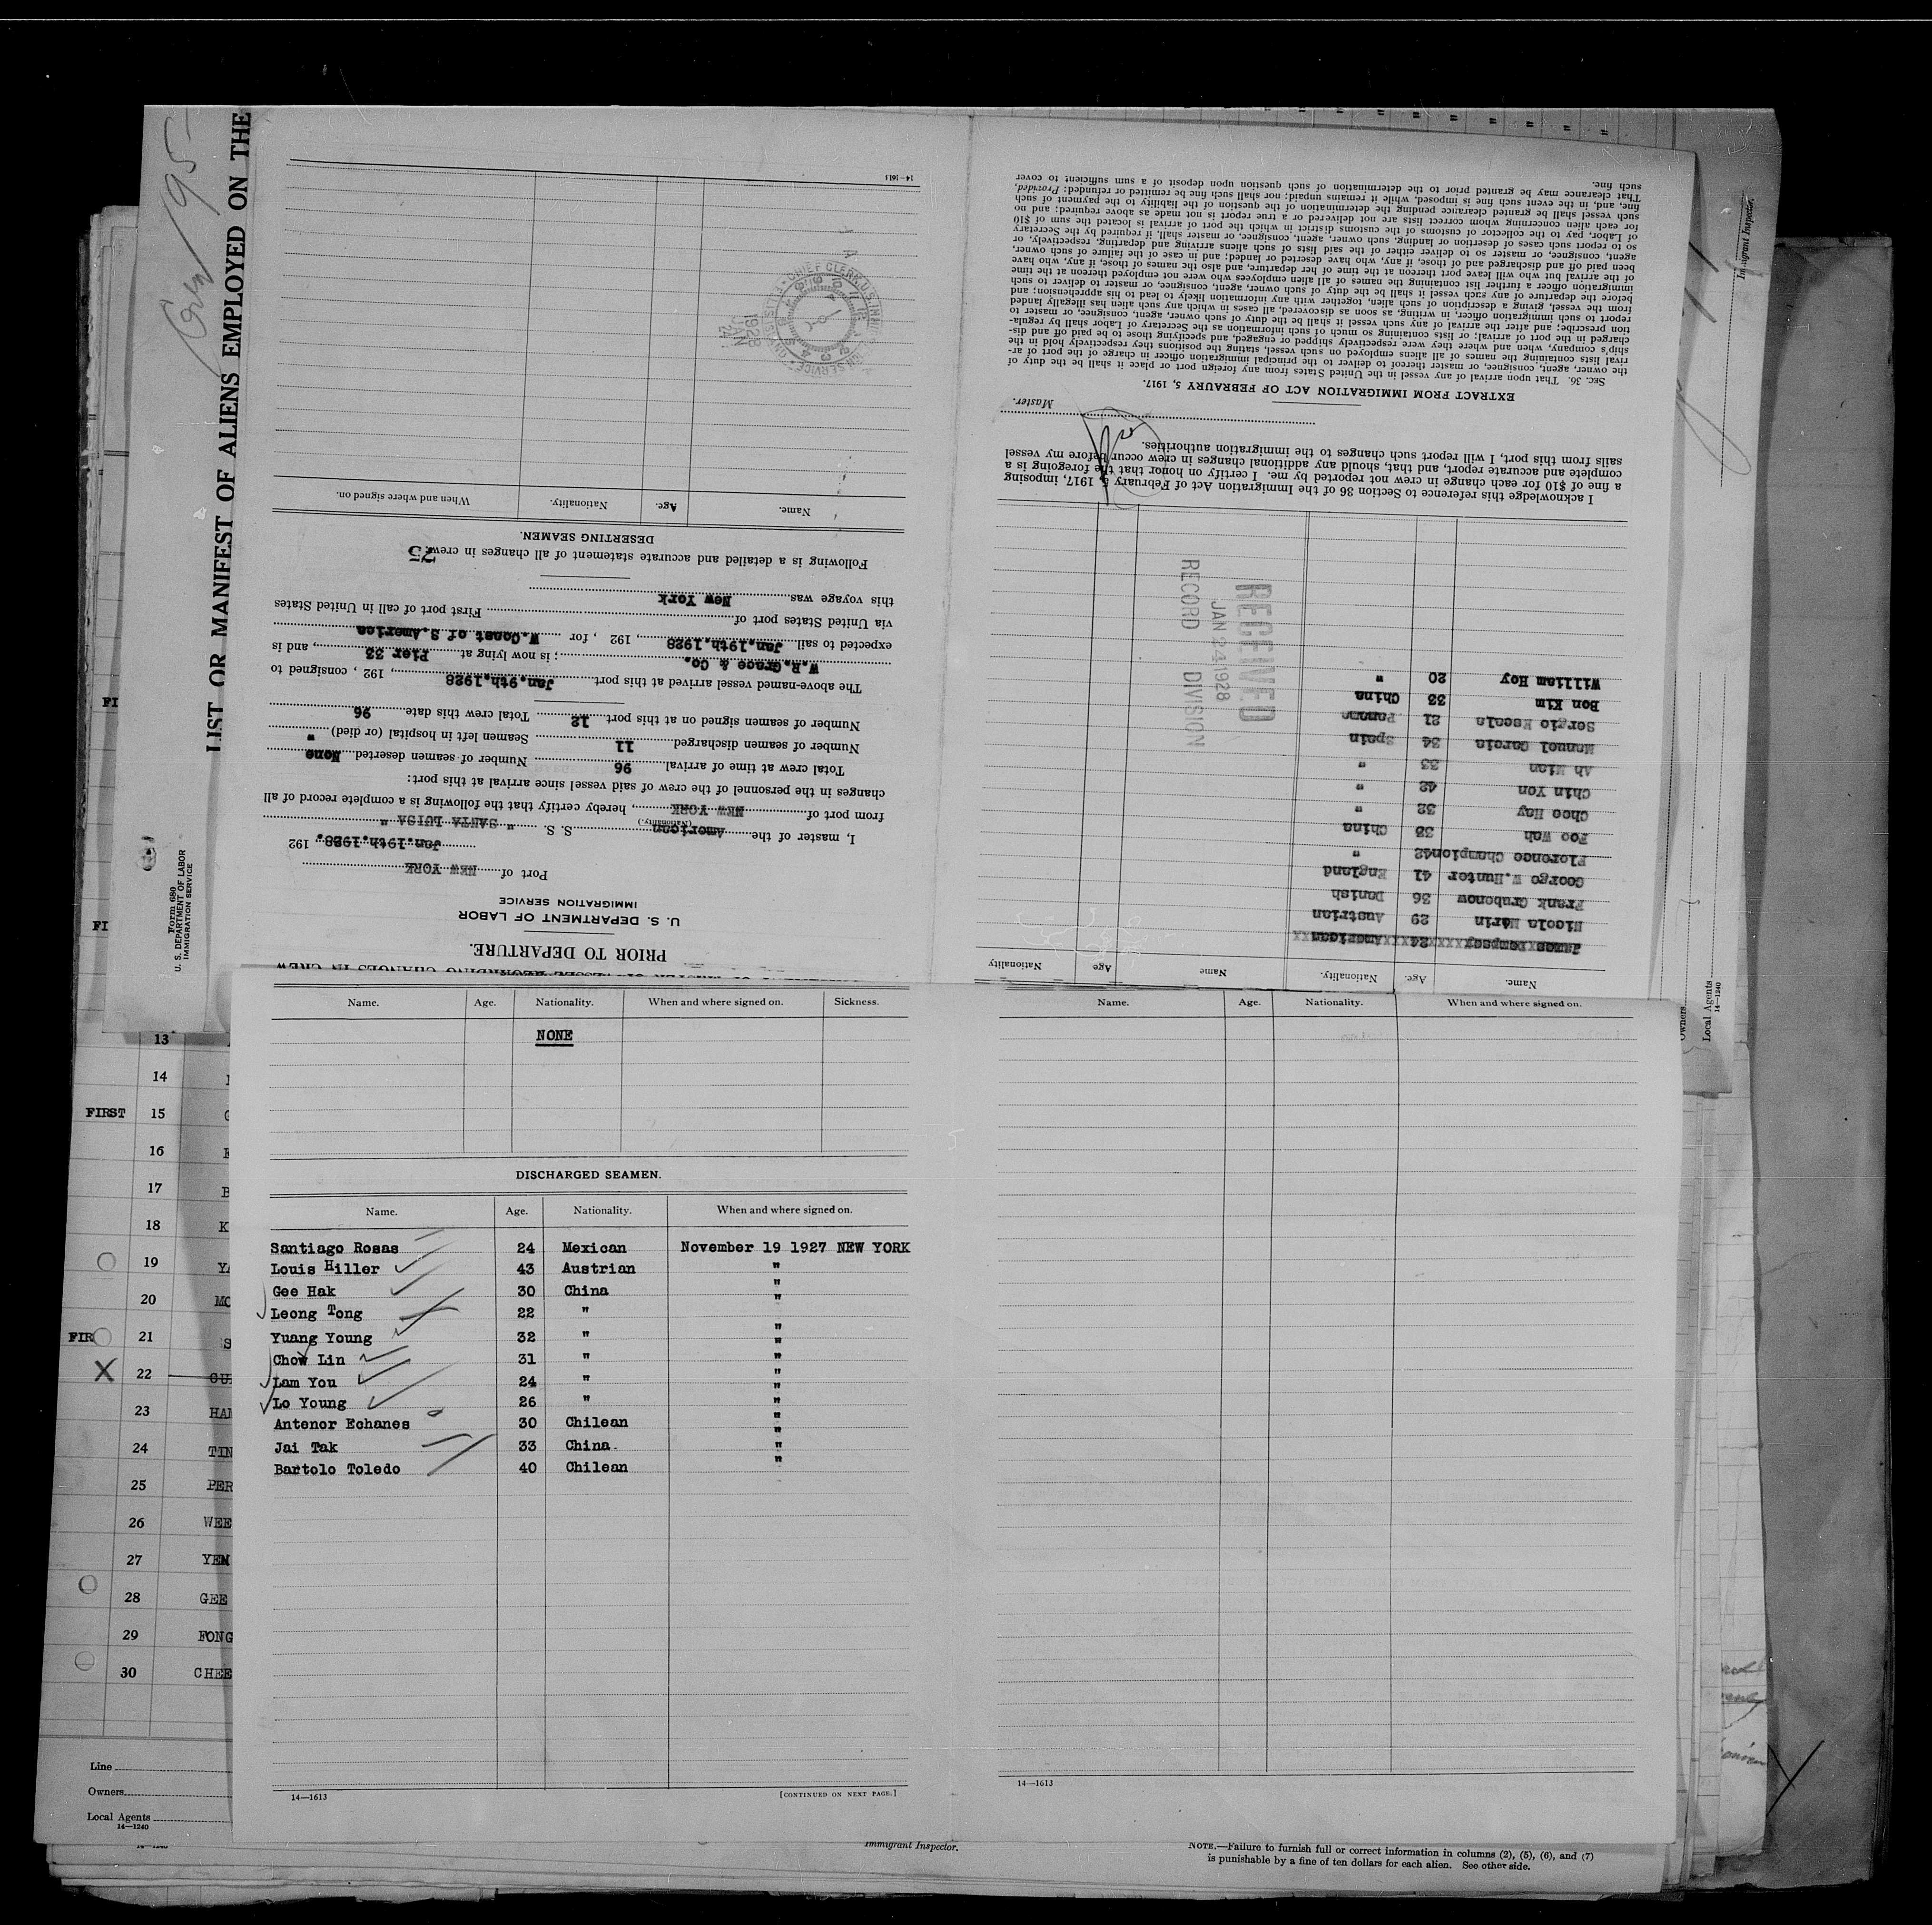 Oven 195
LIST OR MANIFEST OF ALIENS EMPLOYED ON THE
Form 689
U. S. DEPARTMENT OF LABOR
IMMIGRATION SERVICE
PRIOR TO DEPARTURE.
U. S. DEPARTMENT OF LABOR
IMMIGRATION SERVICE
Port of NEW YORK
Jan.19th.1928. 192
I, master of the American S. S. " SANTA LUISA "
(Nationality)
from port of NEW YORK, hereby certify that the following is a complete record of all
changes in the personnel of the crew of said vessel since arrival at this port:
Total crew at time of arrival 96 Number of seamen deserted None
Number of seamen discharged 11 Seamen left in hospital (or died) "
Number of seamen signed on at this port 12 Total crew this date 96
The above-named vessel arrived at this port Jan.9th.1928, 192 , consigned to
W.R.Grace & Co. ; is now lying at Pier 33, and is
expected to sail Jan.19th.1928, 192 , for W.Coast of S.America
via United States port of First port of call in United States
this voyage was New York
Following is a detailed and accurate statement of all changes in crew:
75
DESERTING SEAMEN.
Name. Age. Nationality. When and where signed on.
14—1613
CHIEF CLERK, U.S. IMMIGRATION SERVICE
JAN 24 1928
Name. Age. Nationality. Name Age Nationality
James Dempsey 24 American
Nicola Marin 29 Austrian
Frank Grubenow 36 Danish
George W.Hunter 41 England
Florence Champion 42 "
Foo Wah 35 China
Choo Hay 32 "
Chin Yon 42 "
Ah Mian 33 "
Manuel Garcia 34 Spain
Sergio Escala 21 Panama
Bon Kim 33 China
William Hoy 20 "
RECEIVED
JAN 24 1928
RECORD DIVISION
I acknowledge this reference to Section 36 of the Immigration Act of February 5, 1917, imposing
a fine of $10 for each change in crew not reported by me. I certify on honor that the foregoing is a
complete and accurate report, and that, should any additional changes in crew occur before my vessel
sails from this port, I will report such changes to the immigration authorities.
Master.
EXTRACT FROM IMMIGRATION ACT OF FEBRAURY 5, 1917.
SEC. 36. That upon arrival of any vessel in the United States from any foreign port or place it shall be the duty of
the owner, agent, consignee, or master thereof to deliver to the principal immigration officer in charge of the port of ar-
rival lists containing the names of all aliens employed on such vessel, stating the positions they respectively hold in the
ship's company, when and where they were respectively shipped or engaged, and specifying those to be paid off and dis-
charged in the port of arrival; or lists containing so much of such information as the Secretary of Labor shall by regula-
tion prescribe; and after the arrival of any such vessel it shall be the duty of such owner, agent, consignee, or master to
report to such immigration officer, in writing, as soon as discovered, all cases in which any such alien has illegally landed
from the vessel, giving a description of such alien, together with any information likely to lead to his apprehension; and
before the departure of any such vessel it shall be the duty of such owner, agent, consignee, or master to deliver to such
immigration officer a further list containing the names of all alien employees who were not employed thereon at the time
of the arrival but who will leave port thereon at the time of her departure, and also the names of those, if any, who have
been paid off and discharged and of those, if any, who have deserted or landed; and in case of the failure of such owner,
agent, consignee, or master so to deliver either of the said lists of such aliens arriving and departing, respectively, or
so to report such cases of desertion or landing, such owner, agent, consignee, or master shall, if required by the Secretary
of Labor, pay to the collector of customs of the customs district in which the port of arrival is located the sum of $10
for each alien concerning whom correct lists are not delivered or a true report is not made as above required; and no
such vessel shall be granted clearance pending the determination of the question of the liability to the payment of such
fine, and, in the event such fine is imposed, while it remains unpaid; nor shall such fine be remitted or refunded: Provided,
That clearance may be granted prior to the determination of such question upon deposit of a sum sufficient to cover
such fine.
Immigrant Inspector.
Owners
Local Agents
14—1240
Name. Age. Nationality. When and where signed on. Sickness.
NONE
DISCHARGED SEAMEN.
Name. Age. Nationality. When and where signed on.
Santiago Rosas 24 Mexican November 19 1927 NEW YORK
Louis Hiller 43 Austrian "
Gee Hak 30 China "
Leong Tong 22 " "
Yuang Young 32 " "
Chow Lin 31 " "
Lam You 24 " "
Lo Young 26 " "
Antenor Echanes 30 Chilean "
Jai Tak 33 China. "
Bartolo Toledo 40 Chilean "
14—1613
[CONTINUED ON NEXT PAGE.]
Name. Age. Nationality. When and where signed on.
14—1613
13
14
FIRST 15
16
17
18
19
20
21
X 22
23 HAN
24 TIN
25 PER
26 WEE
27 YEN
28 GEE
29 FONG
30 CHEE
Line
Owners
Local Agents
14—1240
Immigrant Inspector.
NOTE.—Failure to furnish full or correct information in columns (2), (5), (6), and (7)
is punishable by a fine of ten dollars for each alien. See other side.